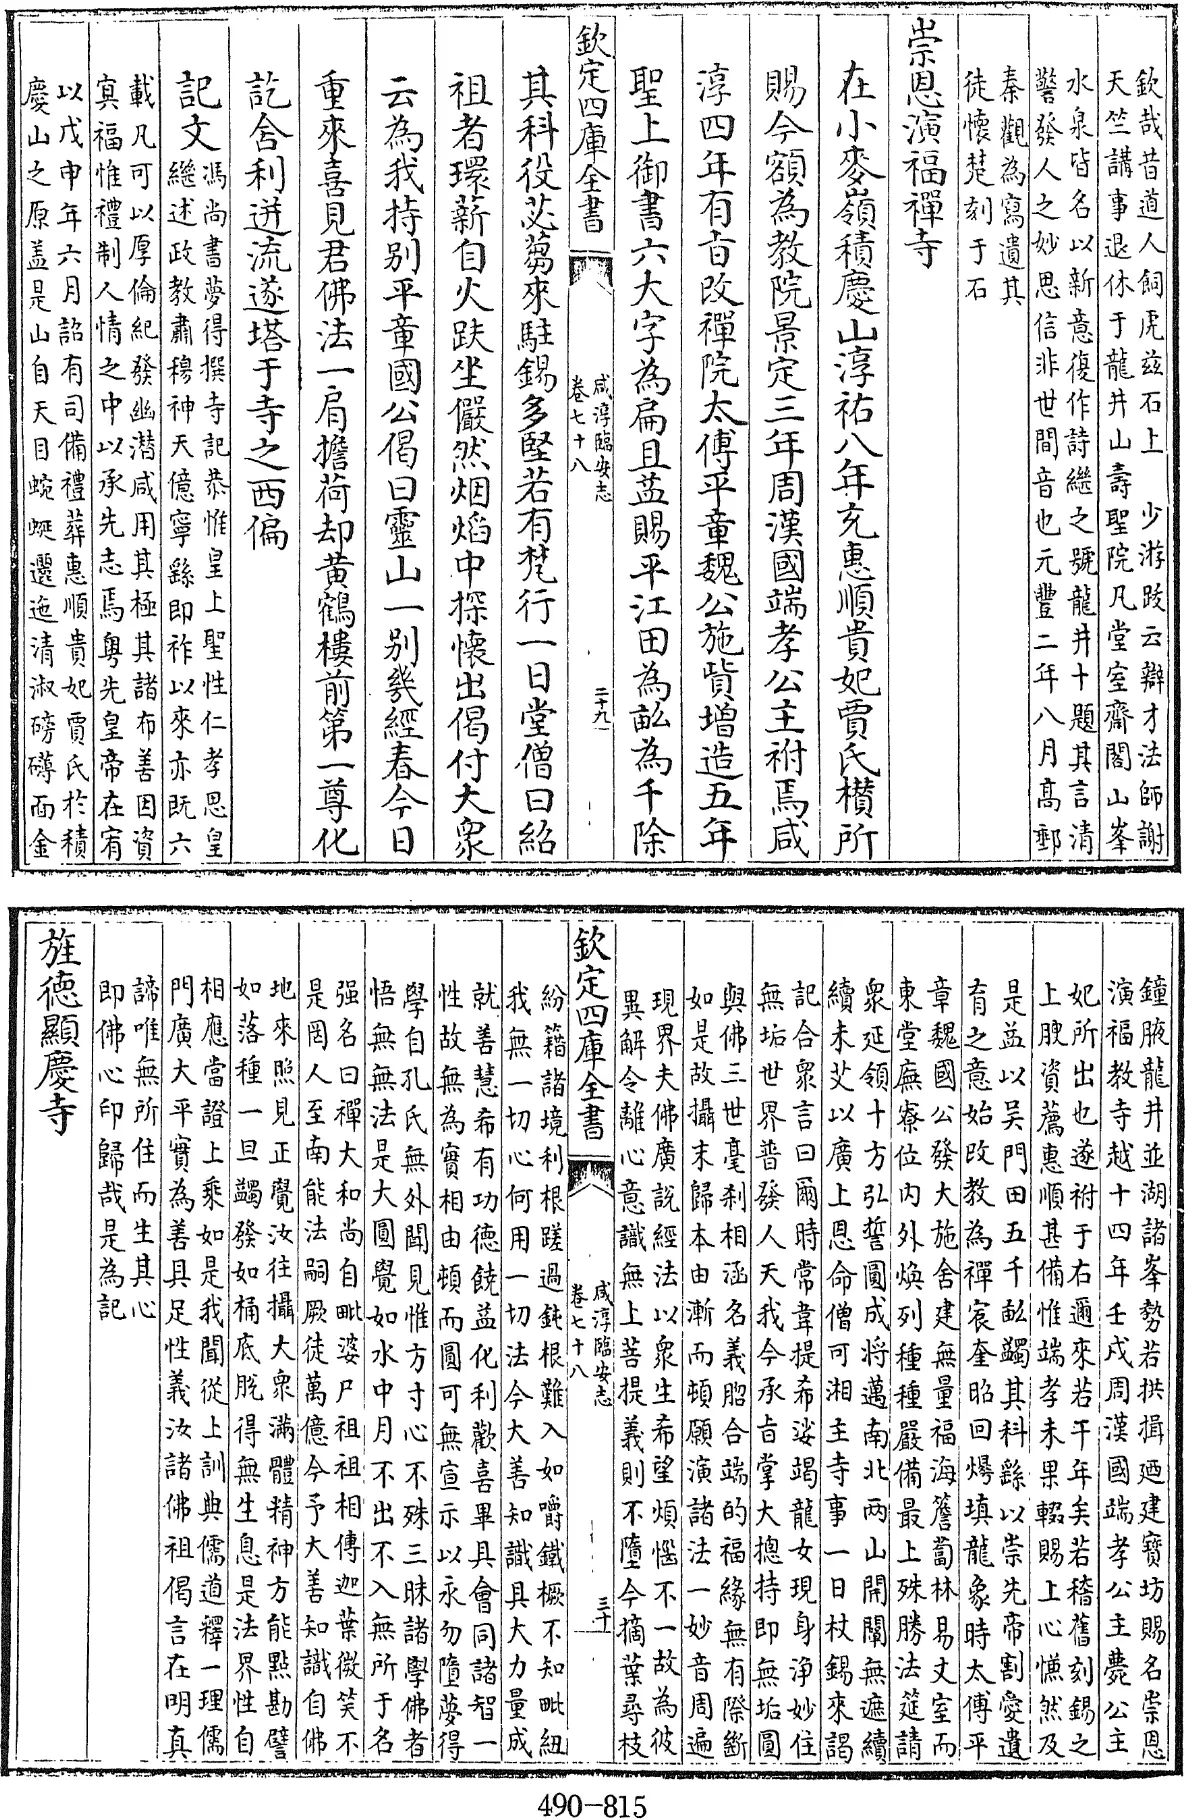 欽哉昔道人飼虎兹石上　少游跋云辯才法師謝
天竺講事退休于龍井山壽聖院凡堂室齋閣山峯
水泉皆名以新意復作詩繼之號龍井十題其言清
警發人之妙思信非世間音也元豐二年八月髙郵
秦觀為寫遺其
徒懷楚刻于石
崇恩演福禪寺
在小麥嶺積慶山淳祐八年充惠順貴妃賈氏欑所
賜今額為教院景定三年周漢國端孝公主祔焉咸
淳四年有㫖改禪院太傅平章魏公施貲增造五年
聖上御書六大字為扁且益賜平江田為畝為千除
欽定四庫全書
咸淳臨安志
卷七十八
二十九
其科役苾蒭來駐錫多堅若有梵行一日堂僧曰紹
祖者環薪自火趺坐儼然烟焰中探懷出偈付大衆
云為我持别平章國公偈曰靈山一别幾經春今日
重來喜見君佛法一肩擔荷却黄鶴樓前第一尊化
訖舍利迸流遂塔于寺之西偏
記文
馮尚書夢得撰寺記恭惟皇上聖性仁孝思皇
繼述政教肅穆神天億寧繇即祚以來亦既六
載凡可以厚倫紀發幽潜咸用其極其諸布善因資
㝠福惟禮制人情之中以承先志焉粤先皇帝在宥
以戊申年六月詔有司備禮葬惠順貴妃賈氏於積
慶山之原葢是山自天目蜿蜒邐迤清淑磅礴面金
鐘腋龍井並湖諸峯勢若拱揖廼建寳坊賜名崇恩
演福教寺越十四年壬戌周漢國端孝公主薨公主
妃所出也遂祔于右邇來若干年矣若稽舊刻錫之
上腴資薦惠順甚備惟端孝未果輟賜上心憮然及
是益以吴門田五千畝蠲其科繇以崇先帝割愛遺
育之意始改教為禪宸奎昭回煬填龍象時太傅平
章魏國公發大施舍建無量福海簷蔔林易丈室而
東堂廡寮位内外煥列種種嚴備最上殊勝法筵請
衆延領十方弘誓圓成将邁南北兩山開闡無遮續
續未艾以廣上恩命僧可湘主寺事一日杖錫來謁
記合衆言曰爾時常韋提希娑竭龍女現身净妙住
無垢世界普發人天我今承㫖掌大摠持即無垢圓
與佛三世毫刹相涵名義脗合端的福緣無有際斷
如是故攝末歸本由漸而頓願演諸法一妙音周遍
現界夫佛廣說經法以衆生希望煩惱不一故為彼
異解令離心意識無上菩提義則不墮今摘葉尋枝
欽定四庫全書
咸淳臨安志
卷七十八
三十
紛籍諸境利根蹉過鈍根難入如嚼鐵橛不知毗紐
我無一切心何用一切法今大善知識具大力量成
就善慧希有功德饒益化利歡喜畢具會同諸智一
性故無為實相由頓而圓可無宣示以永勿墮夢得
學自孔氏無外聞見惟方寸心不殊三昧諸學佛者
悟無無法是大圓覺如水中月不出不入無所于名
强名曰禪大和尚自毗婆尸祖祖相傳迦葉微笑不
是罔人至南能法嗣厥徒萬億今予大善知識自佛
地來照見正覺汝往攝大衆滿體精神方能㸃勘譬
如落種一旦蠲發如桶底脱得無生息是法界性自
相應當證上乘如是我聞從上訓典儒道釋一理儒
門廣大平實為善具足性義汝諸佛祖偈言在明真
諦唯無所住而生其心
即佛心印歸哉是為記
旌德顯慶寺
490-815